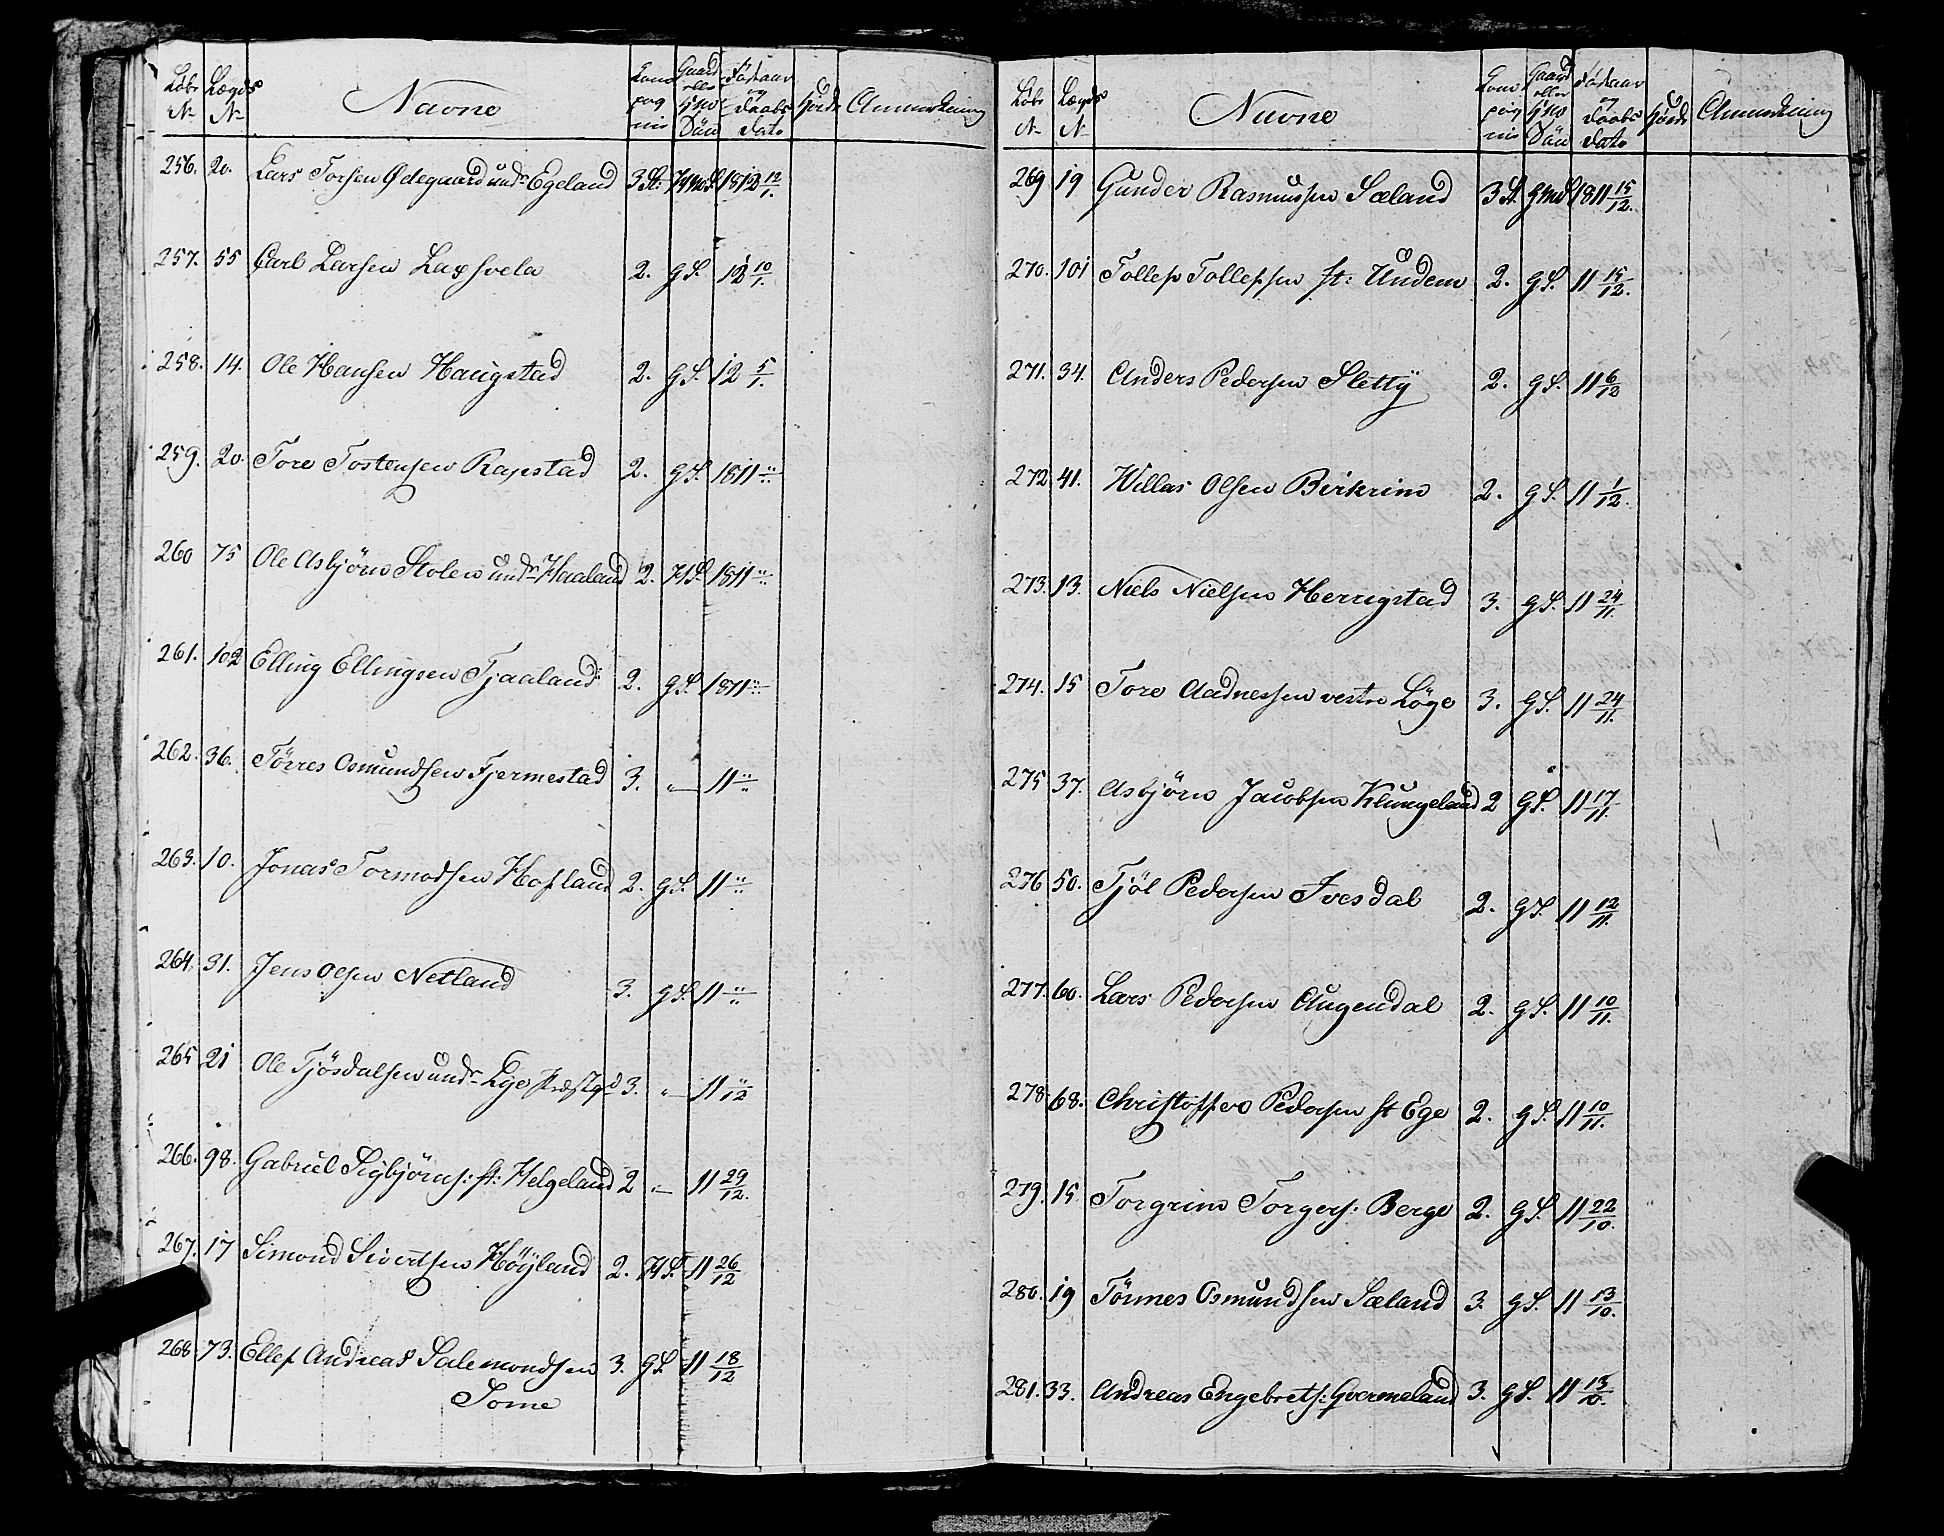 Løbe Lægds Navne Com Gaard Fødtaar Hjørde Anmærkning
N N pag eller og
nie Huo Daabs
Dün dato
256. 20. Lars Torsen Ødegaard und Egeland 3 St: HmdS 1812 12/1.
257. 55 Carl Larsen Laxsvela 2. gS. 12 10/1.
258. 14. Ole Hansen Haugstad 2. gS. 12 5/1.
259. 20. Tore Tostensen Rapstad 2. gS. 1811 "
260 75 Ole Asbjörn Stolen und Haaland 2. HS. 1811 "
261. 102 Elling Ellingsen Tjaaland 2. gS. 1811 "
262. 36. Törres Osmundsen Fjermestad 3. " 11 "
263. 10. Jonas Tormodsen Hofland 2. gS. 11 "
264. 31. Jens Olsen Netland 3. gS. 11 "
265 21 Ole Tjösdalsen und Lye Præstgd 3. " 11 "/12
266. 98. Gabriel Sigbjörns: St: Helgeland 2 " 11 29/12.
267. 17 Simond Sivertsen Höyland 2. HS. 11 26/12
268. 73. Ellef Andreas Salemondsen 3. gS. 11 18/12
Tome
Løbe Lægds Navne Com Gaard Fødtaar Hjørde Anmærkning
N N pag eller og
nie Huo Daabs
Dün dato
269 19 Gunder Rasmussen Sæland 3 St. gmdS 1811 15/12.
270. 101 Tollef Tollefsen St: Undem 2. gS. 11 15/12.
271. 34. Anders Pedersen Sletty 2. gS. 11 6/12
272 41. Villas Olsen Birkrim 2. gS. 11 1/12.
273. 13. Niels Nielsen Herregstad 3. gS. 11 24/11.
274. 15 Tore Aadnessen vestre Løge 3. gS. 11 24/11.
275 37. Asbjörn Jacobsen Klungeland 2 gS. 11 17/11.
276 50. Tjöl Pedersen Ivesdal 2. gS. 11 12/11.
277. 60. Lars Pedersen Augendal 2. gS. 11 10/11.
278 68. Christoffer Pedersen St Ege 2. gS. 11 10/11.
279. 15. Torgrim Torgers: Berge 2. gS. 11 22/10.
280. 19 Tönnes Osmundsen Sæland 3. gS. 11 13/10.
281. 33. Andreas Engebrets: Gvermeland 3. gS. 11 13/10.